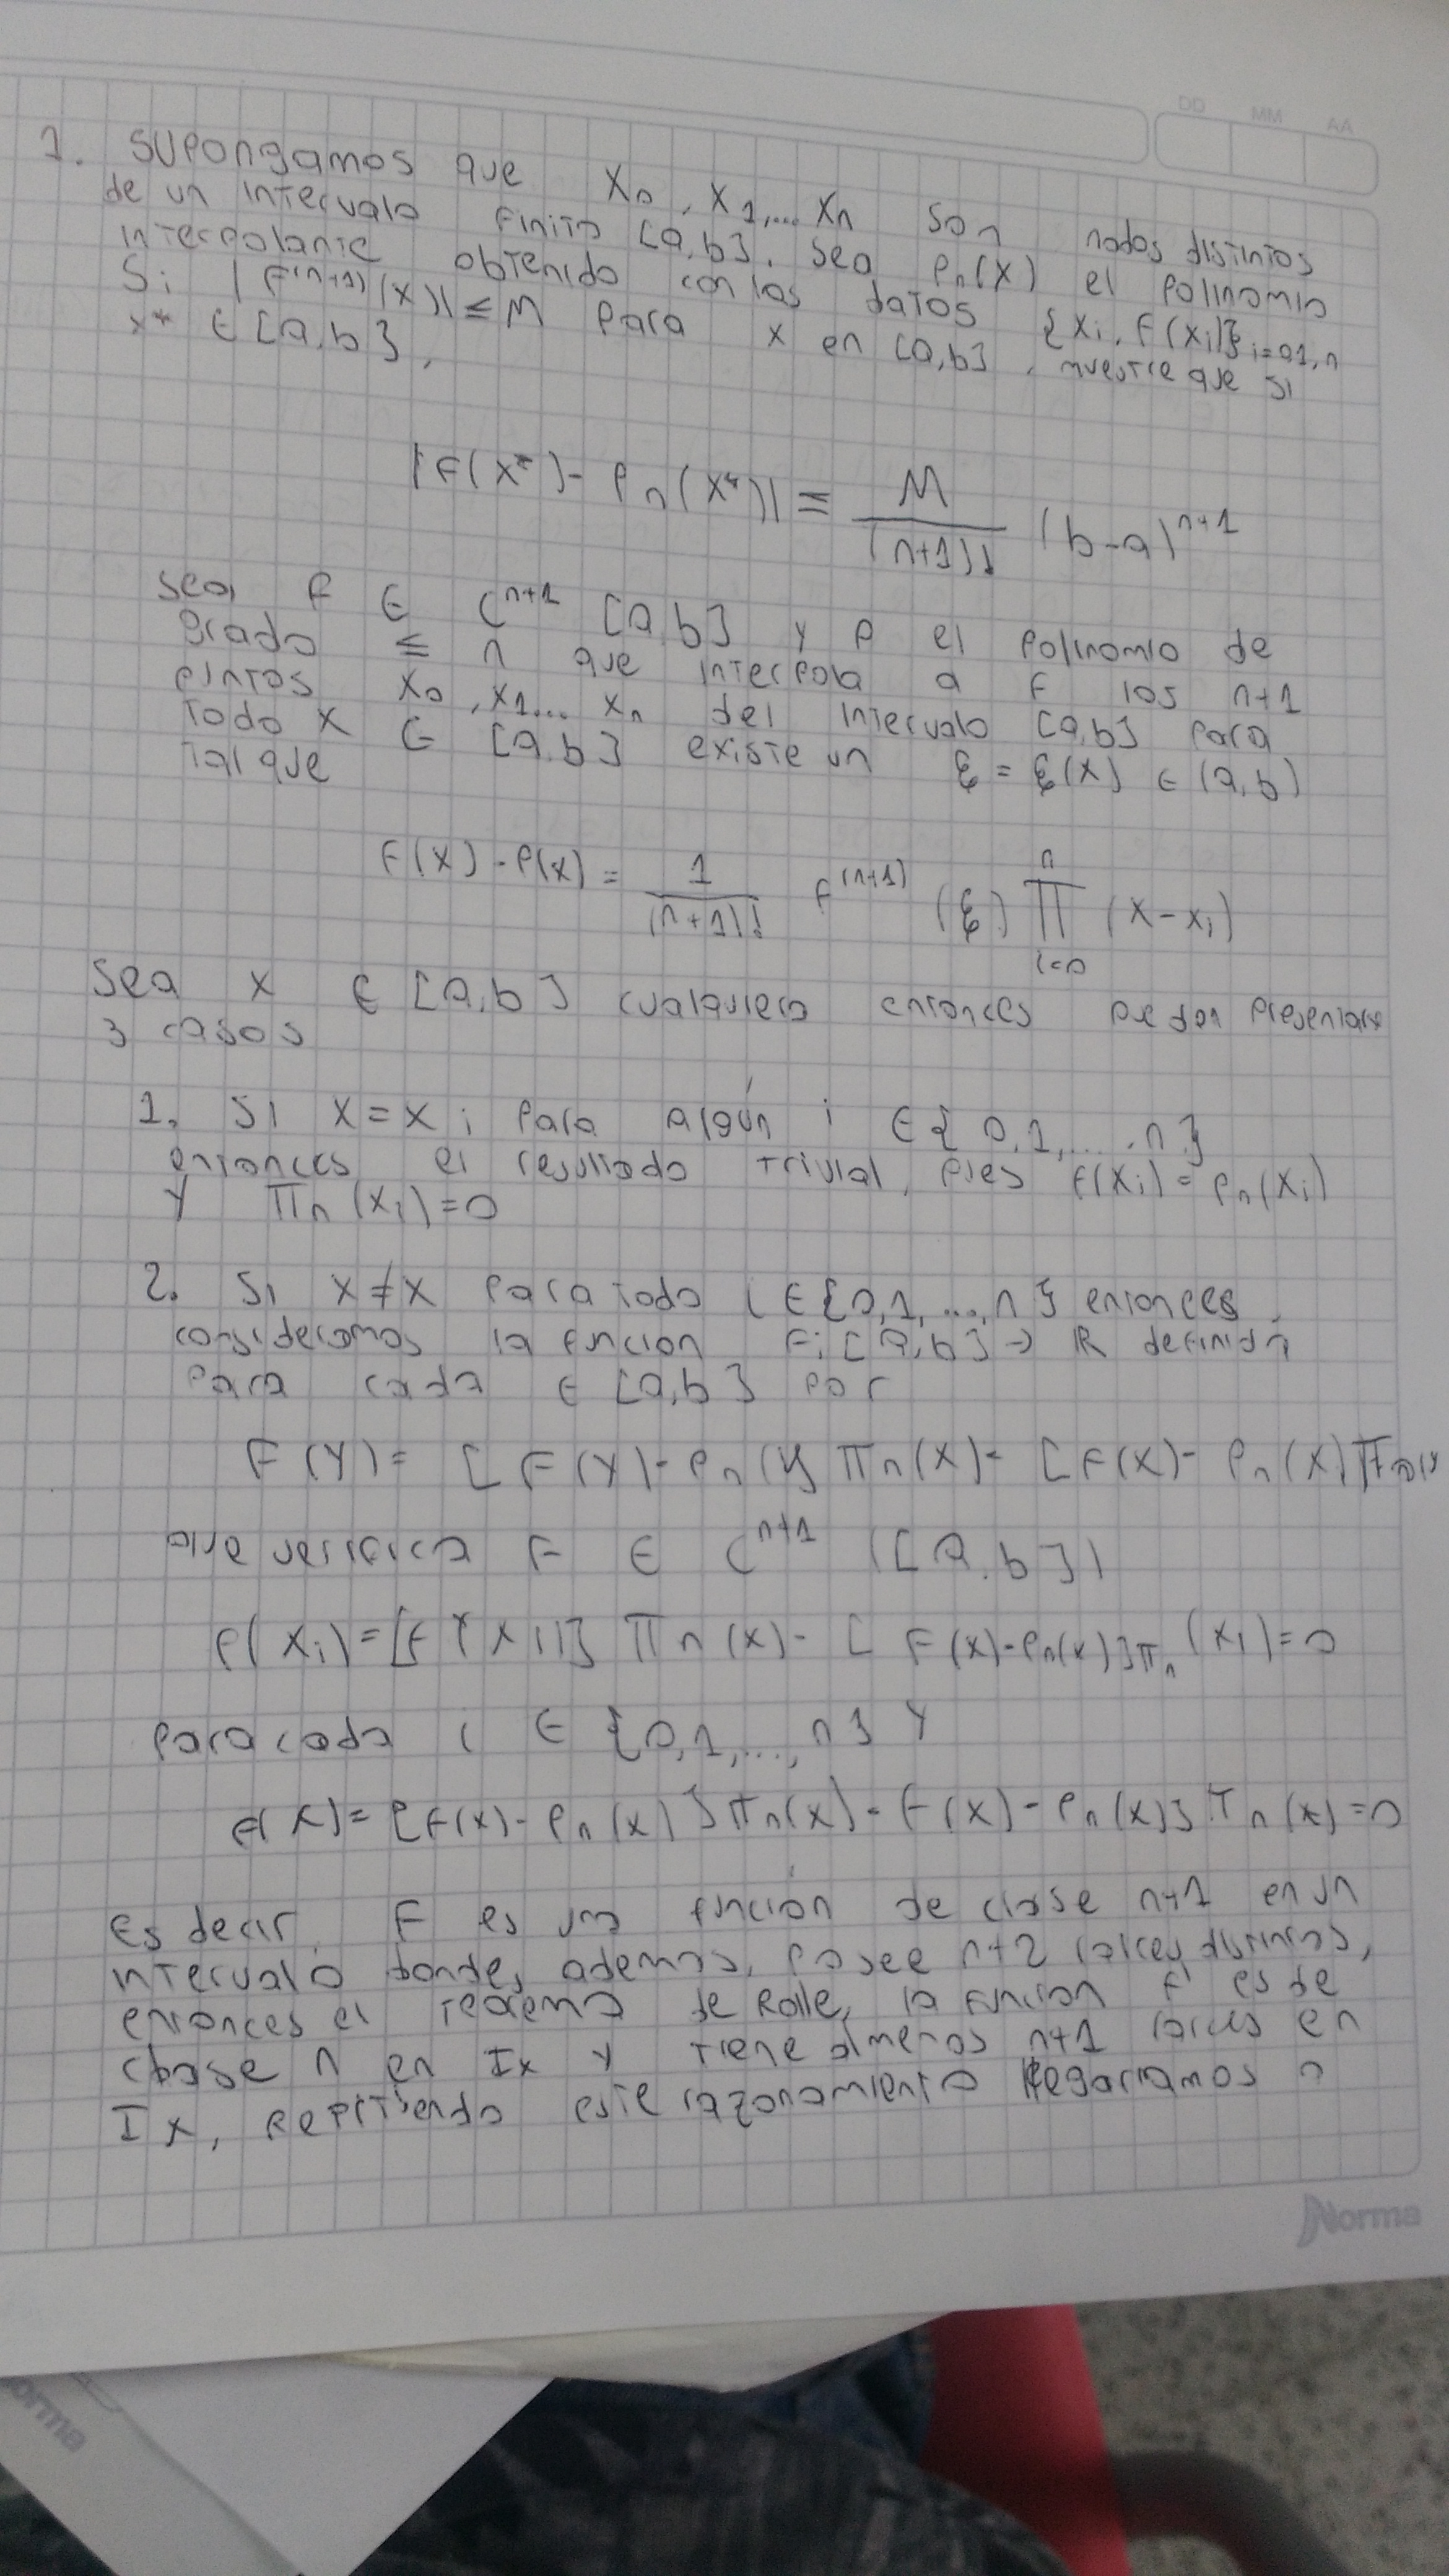 DD MM AA
1. Supongamos que x₀, x₁,... xₙ son nodos distintos
de un intervalo finito [a,b]. Sea Pₙ(x) el polinomio
interpolante obtenido con los datos {xᵢ, F(xᵢ)}ᵢ₌₀,₁,ₙ
Si |F⁽ⁿ⁺¹⁾(x)| ≤ M para x en [a,b], muestre que si
x* ∈ [a,b],
|F(x*) - Pₙ(x*)| ≤ M/(n+1)! (b-a)ⁿ⁺¹
Sea F ∈ Cⁿ⁺¹ [a,b] y P el polinomio de
grado ≤ n que interpola a F los n+1
pintos x₀, x₁... xₙ del intervalo [a,b] para
todo x ∈ [a,b] existe un ξ = ξ(x) ∈ (a,b)
tal que
F(x) - P(x) = 1/(n+1)! F⁽ⁿ⁺¹⁾ (ξ) ∏ᵢ₌₀ⁿ (x-xᵢ)
Sea x ∈ [a,b] cualquiera entonces presentarse
3 casos
1. Si x = xᵢ para algún i ∈ {0,1,...,n}
entonces el resultado trivial, pues F(xᵢ) = Pₙ(xᵢ)
y πₙ(xᵢ)=0
2. Si x ≠ x para todo i ∈ {0,1,...,n} entonces
consideramos la funcion F: [a,b] → ℝ definida
para cada ∈ [a,b] por
F(y) = [F(y) - Pₙ(y] πₙ(x) - [F(x) - Pₙ(x] πₙ(y
que verifica F ∈ Cⁿ⁺¹ ([a,b])
F(xᵢ) = [F(xᵢ)] πₙ(x) - [F(x)-Pₙ(x)]πₙ(xᵢ) = 0
para cada i ∈ {0,1,...,n} y
F(x) = [F(x) - Pₙ(x)] πₙ(x) - F(x) - Pₙ(x)] πₙ(x) = 0
Es decir, F es una función de clase n+1 en un
intervalo donde, ademas, posee n+2 raices distintas,
entonces el teorema de Rolle, la funcion F' es de
clase n en Ix y tiene almenos n+1 raices en
Ix, repitiendo este razonamiento llegariamos a
Norma
orma